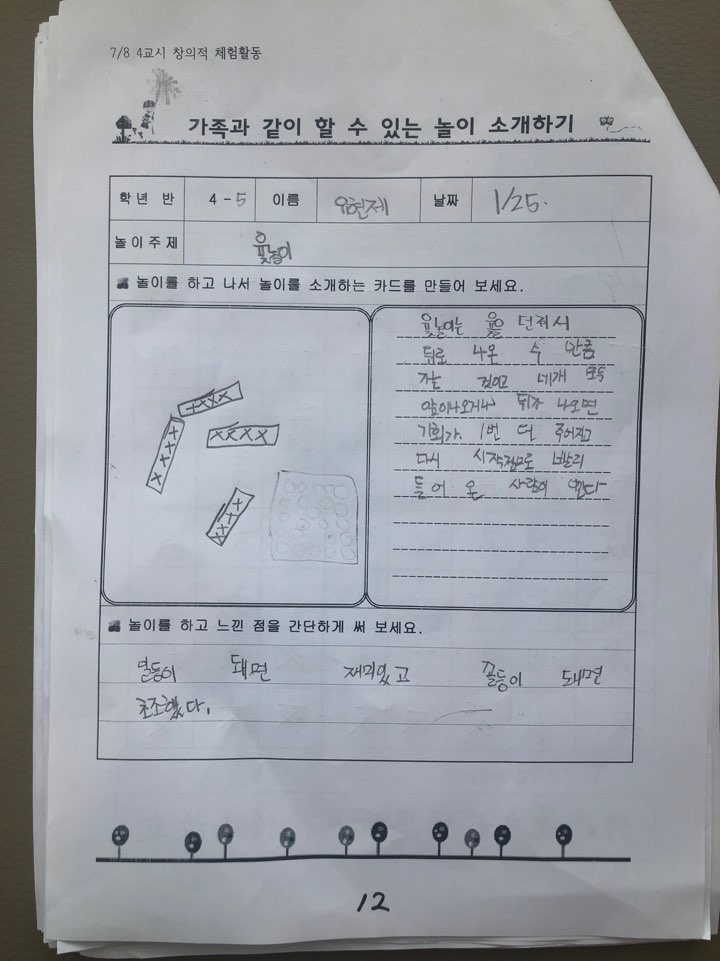 7/8 4교시 창의적 체험활동
가족과 같이 할 수 있는 놀이 소개하기
학년 반 4-5 이름 유현제 날짜 1/25.
놀이주제 윷놀이
놀이를 하고 나서 놀이를 소개하는 카드를 만들어 보세요.
윷놀이는 윷을 던져서
뒤로 나온 수 만큼
가는 것이고 네개 모두
앞이나오거나 뒤가 나오면
기회가 1번 더 주어지고
다시 시작점으로 빨리
들어 온 사람이 이긴다
놀이를 하고 느낀 점을 간단하게 써 보세요.
일등이 돼면 재미있고 꼴등이 돼면
초조했다.
12